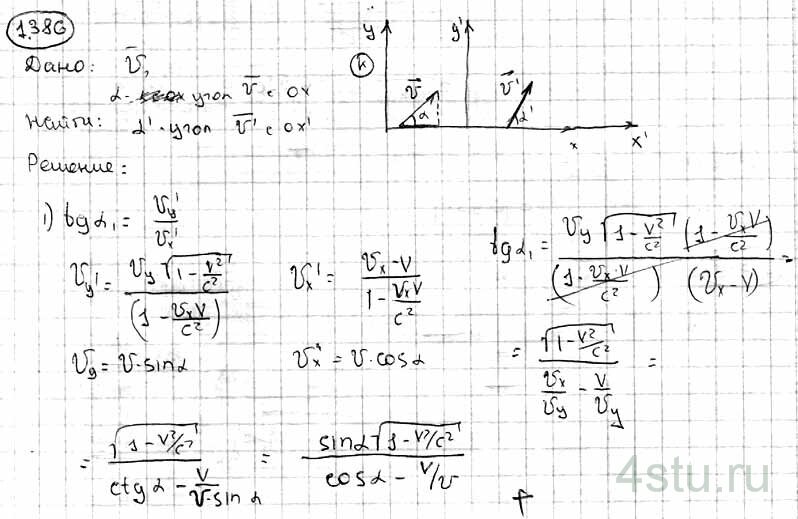 1.386
Дано: v̄,
α - угол v̄ с ox
Найти: α' - угол v̄' с ox'
Решение:
y y' K v̄ α v̄' α' x x'
1) tgα₁ = v_y' / v_x'
v_y' = v_y √(1 - V²/c²) / (1 - v_x V/c²)
v_x' = (v_x - V) / (1 - v_x V/c²)
tgα₁ = v_y √(1 - V²/c²) (1 - v_x V/c²) / ((1 - v_x·V/c²) (v_x - V)) =
v_y = v·sinα
v_x = v·cosα
= √(1 - V²/c²) / (v_x/v_y - V/v_y) =
= √(1 - V²/c²) / (ctgα - V/(v·sinα)) = sinα √(1 - V²/c²) / (cosα - V/v)
4stu.ru